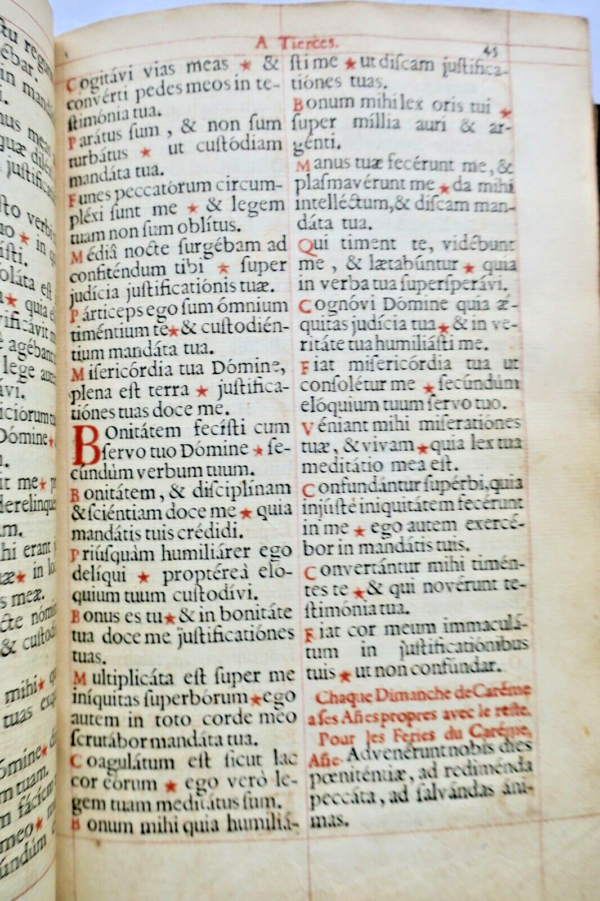 A Tierces.
45
Cogitávi vias meas ★ &
convérti pedes meos in te-
ſtimónia tua.
Parátus ſum, & non ſum
turbátus ★ ut cuſtódiam
mandáta tua.
Funes peccatórum circum-
pléxi ſunt me ★ & legem
tuam non ſum oblítus.
Médiâ nocte ſurgébam ad
confiténdum tibi ★ ſuper
judícia juſtificatiónis tuæ.
Párticeps ego ſum ómnium
timéntium te★& cuſtodién-
tium mandáta tua.
Miſericórdia tua Dómine,
plena eſt terra ★ juſtifica-
tiónes tuas doce me.
Bonitátem feciſti cum
ſervo tuo Dómine ★ ſe-
cúndùm verbum tuum.
Bonitátem, & diſciplínam
& ſciéntiam doce me ★ quia
mandátis tuis crédidi.
Priúſquàm humiliárer ego
delíqui ★ proptéreà elo-
quium tuum cuſtodívi.
Bonus es tu★& in bonitáte
tua doce me juſtificatiónes
tuas.
Multiplicáta eſt ſuper me
iníquitas ſuperbórum★ego
autem in toto corde meo
ſcrutábor mandáta tua.
Coagulátum eſt ſicut lac
cor eórum ★ ego verò le-
gem tuam meditátus ſum.
Bonum mihi quia humiliá-
ſti me ★ ut diſcam juſtifica-
tiónes tuas.
Bonum mihi lex oris tui ★
ſuper míllia auri & ar-
génti.
Manus tuæ fecérunt me, &
plaſmavérunt me ★ da mihi
intelléctum,& diſcam man-
dáta tua.
Qui timent te, vidébunt
me, & lætabúntur ★ quia
in verba tua ſuperſperávi.
Cognóvi Dómine quia æ-
quitas judícia tua★& in ve-
ritáte tua humiliáſti me.
Fiat miſericórdia tua ut
conſolétur me ★ ſecúndùm
elóquium tuum ſervo tuo.
Véniant mihi miſeratiónes
tuæ, & vivam★quia lex tua
meditátio mea eſt.
Confundántur ſupérbi, quia
injúſtè iniquitátem fecérunt
in me ★ ego autem exercé-
bor in mandátis tuis.
Convertántur mihi timén-
tes te ★& qui novérunt te-
ſtimónia tua.
Fiat cor meum immaculá-
tum in juſtificatiónibus
tuis ★ ut non confúndar.
Chaque Dimanche de Caréme
a ses Añes propres avec le reste.
Pour les Feries du Caréme,
Añe. Advenérunt nobis dies
pœniténtiæ, ad rediménda
peccáta, ad ſalvándas áni-
mas.